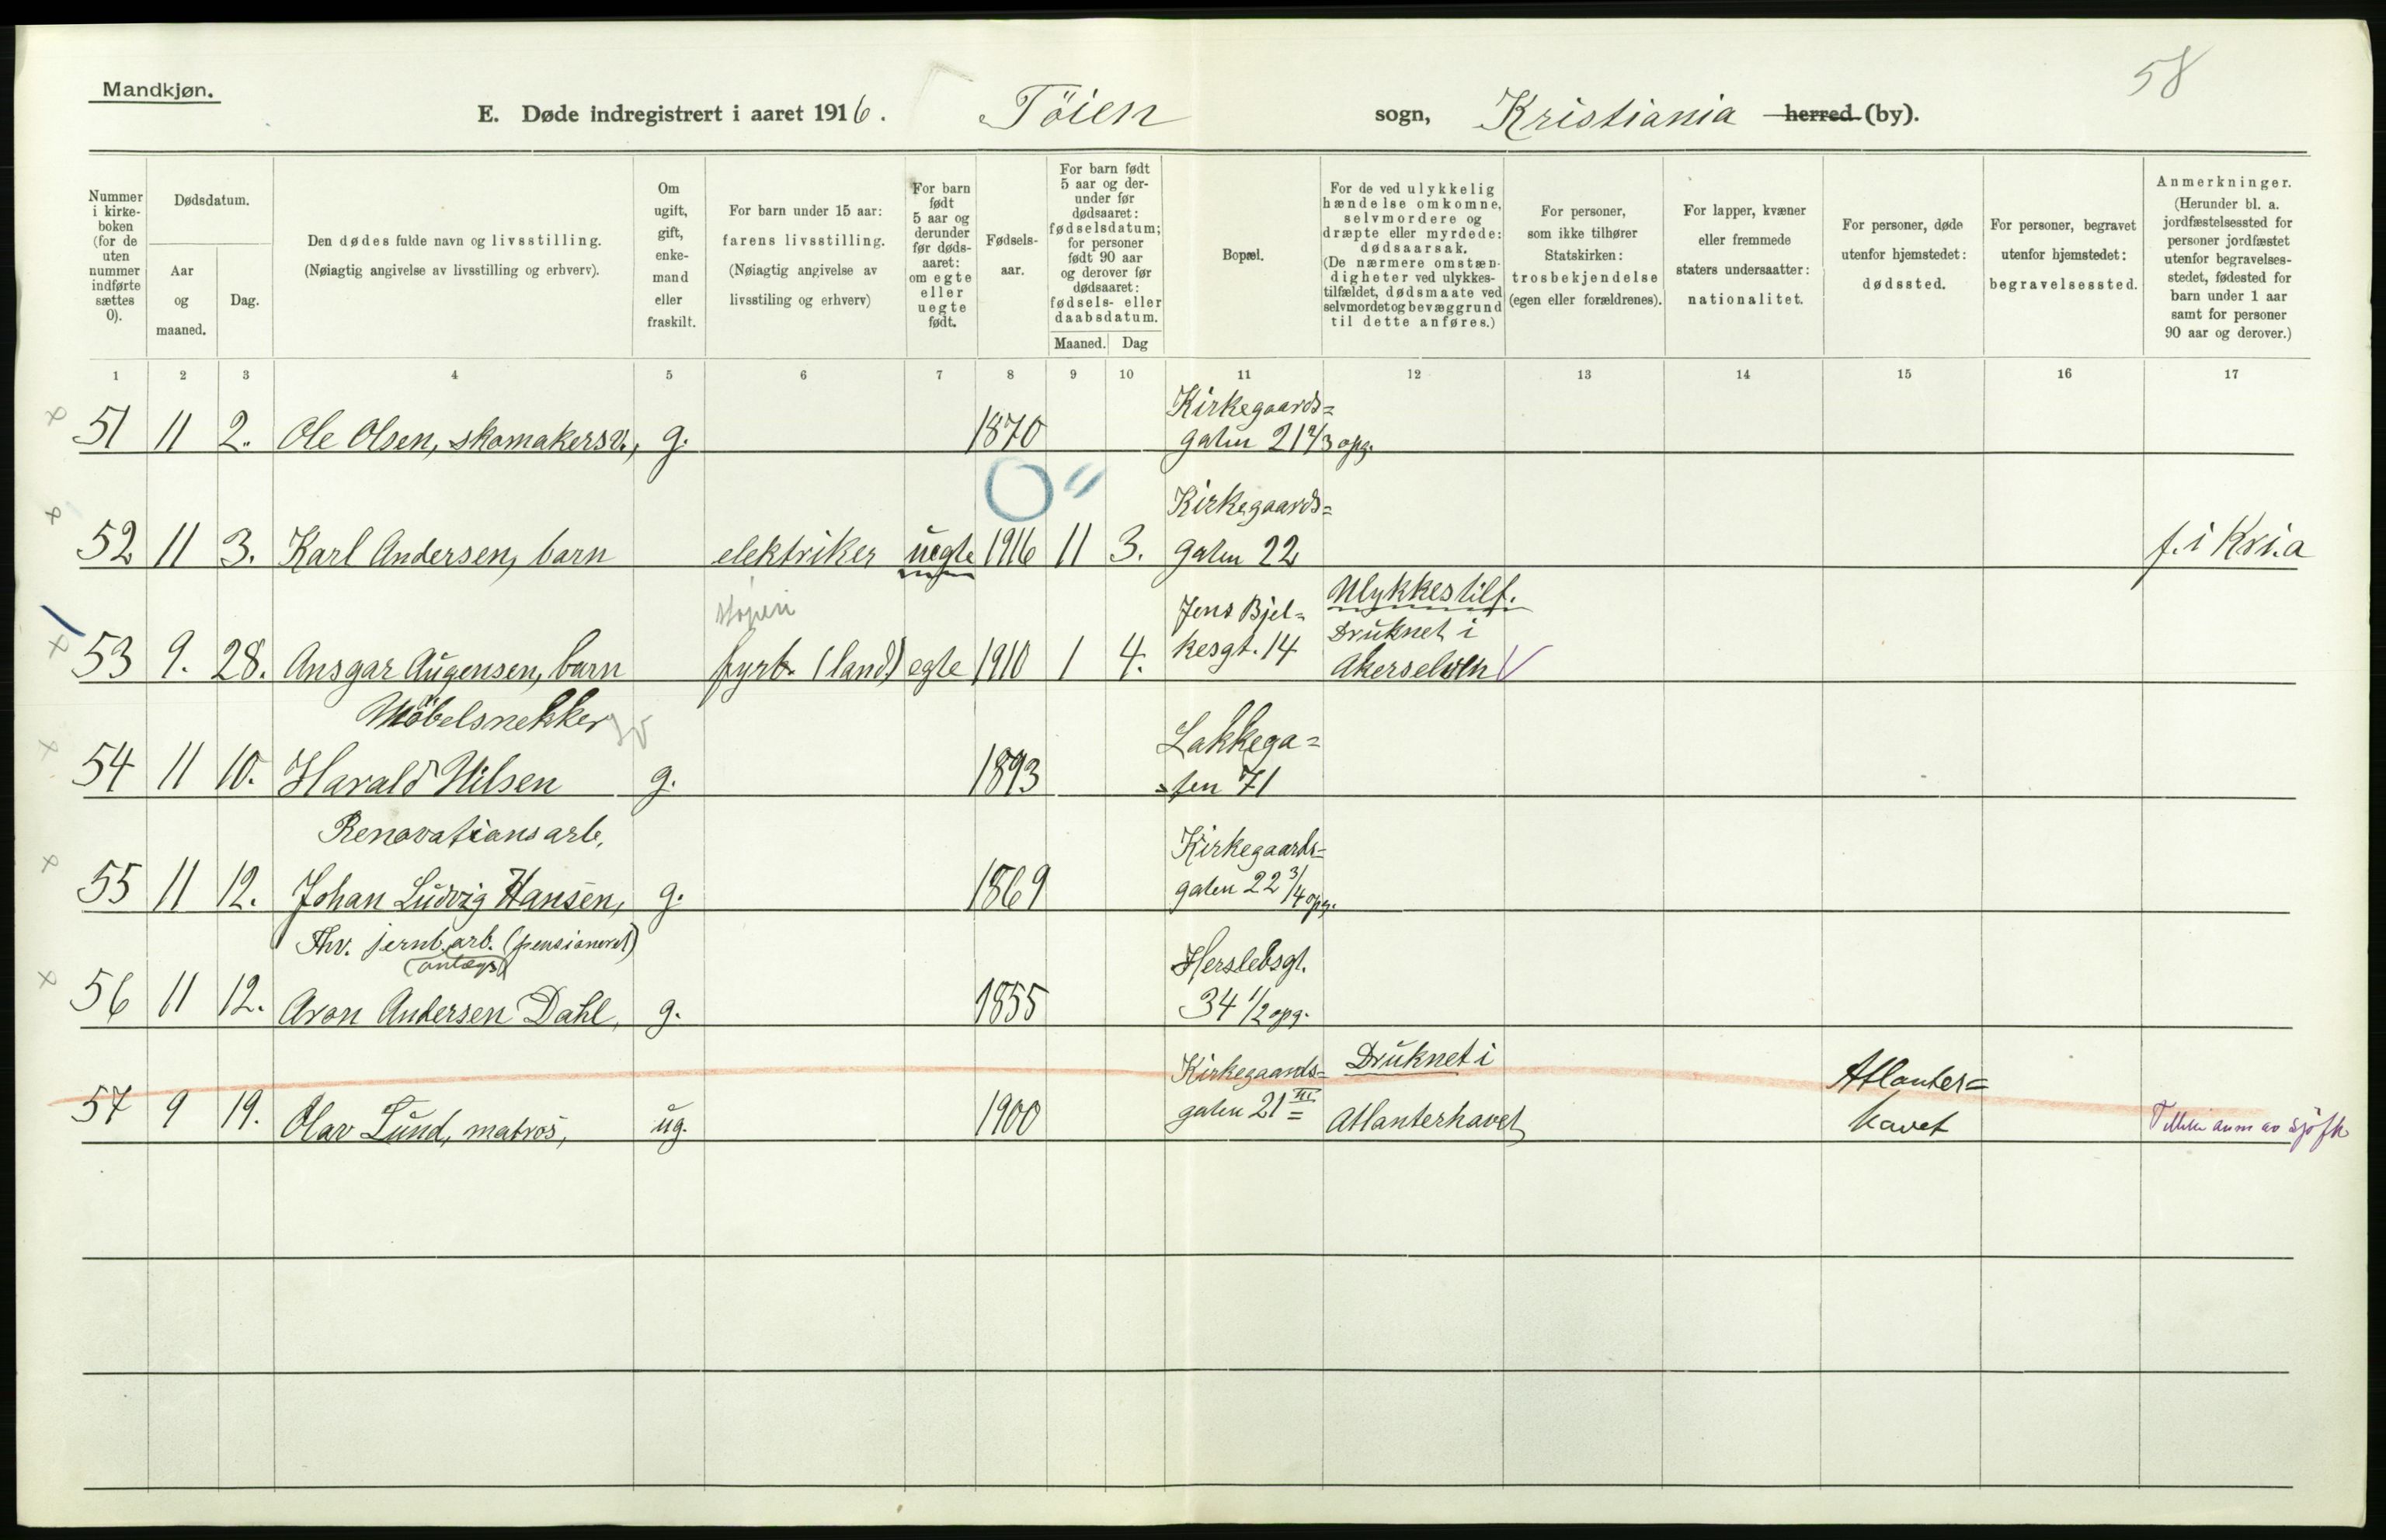 58
Mandkjøn.
E. Døde indregistrert i aaret 1916. Töien sogn, Kristiania herred (by).
Nummer i kirke-boken (for de uten nummer indførte sættes 0).
Dødsdatum.
Aar og maaned.
Dag.
Den dødes fulde navn og livsstilling.
(Nøiagtig angivelse av livsstilling og erhverv).
Om ugift, gift, enke-mand eller fraskilt.
For barn under 15 aar:
farens livsstilling.
(Nøiagtig angivelse av
livsstiling og erhverv)
For barn født 5 aar og derunder før døds-aaret: om egte eller uegte født.
Fødsels-aar.
For barn født 5 aar og der-under før dødsaaret: fødselsdatum; for personer født 90 aar og derover før dødsaaret: fødsels- eller daabsdatum.
Maaned. Dag
Bopæl.
For de ved ulykkelig hændelse omkomne, selvmordere og dræpte eller myrdede: dødsaarsak.
(De nærmere omstæn-digheter ved ulykkes-tilfældet, dødsmaate ved selvmordet og bevæggrund til dette anføres.)
For personer, som ikke tilhører Statskirken: trosbekjendelse (egen eller forældrenes).
For lapper, kvæner eller fremmede staters undersaatter: nationalitet.
For personer, døde utenfor hjemstedet: dødssted.
For personer, begravet utenfor hjemstedet: begravelsessted.
Anmerkninger.
(Herunder bl. a. jordfæstelsessted for personer jordfæstet utenfor begravelses-stedet, fødested for barn under 1 aar samt for personer 90 aar og derover.)
1 2 3 4 5 6 7 8 9 10 11 12 13 14 15 16 17
Kirkegaards=
51 11 2. Ole Olsen, skomakersv., g. 1870 gaten 21 2/3 opg.
0 "
Kirkegaards=
52 11 3. Karl Andersen, barn elektriker uegte 1916 11 3. gaten 22 f. i Kri.a
Ulykkestilf.
Jens Bjel= Druknet i
53 9. 28. Ansgar Augensen, barn fyrb. (land) egte 1910 1 4. kesgt. 14 Akerselven
Möbelsnekker Lakkega=
54 11 10. Harald Nilsen g. 1893 =ten 71
Renovationsarb. Kirkegaards=
55 11 12. Johan Ludvig Hansen, g. 1869 gaten 22 3/4 opg.
Fhv. jernb. arb. (pensioneret) Herslebsgt.
(anlægs)
56 11 12. Aron Andersen Dahl, g. 1855 34 1/2 opg.
Kirkegaards= Druknet i Atlanter=
57 9 19. Olav Lund, matros, ug. 1900 gaten 21 III Atlanterhavet havet av sjöfk